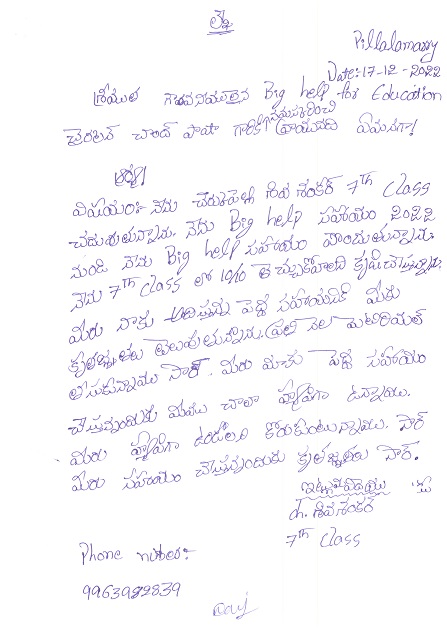 లేఖ
Pillalamarry
Date:-17-12-2022
శ్రీయుత గౌరవనీయులైన Big help for Education
చైర్మన్ చాంద్ పాషా గారికి నమస్కరించి వ్రాయునది ఏమనగా!
విషయం:- నేను శివ శంకర్ 7th Class
చదువుతున్నాను. నేను Big help సహాయం 2022
నుండి నేను Big help సహాయం పొందుతున్నాను.
నేను 7th Class లో 10/10 తెచ్చుకోవాలని కృషిచేస్తున్నాను.
మీరు నాకు పెద్ద సహాయానికి మీకు
కృతజ్ఞతలు తెలుపుతున్నాను. ప్రతి నెల మెటీరియల్
తీసుకున్నాము సార్. మీరు మాకు పెద్ద సహాయం
చేస్తున్నందుకు మేము చాలా హ్యాపీగా ఉన్నాము.
మీరు హ్యాపీగా ఉండాలని కోరుకుంటున్నాము. సార్
మీరు సహాయం చేస్తున్నందుకు కృతజ్ఞతలు సార్.
ఇట్లు
ch. శివశంకర్
7th Class
Phone number:-
9963982839